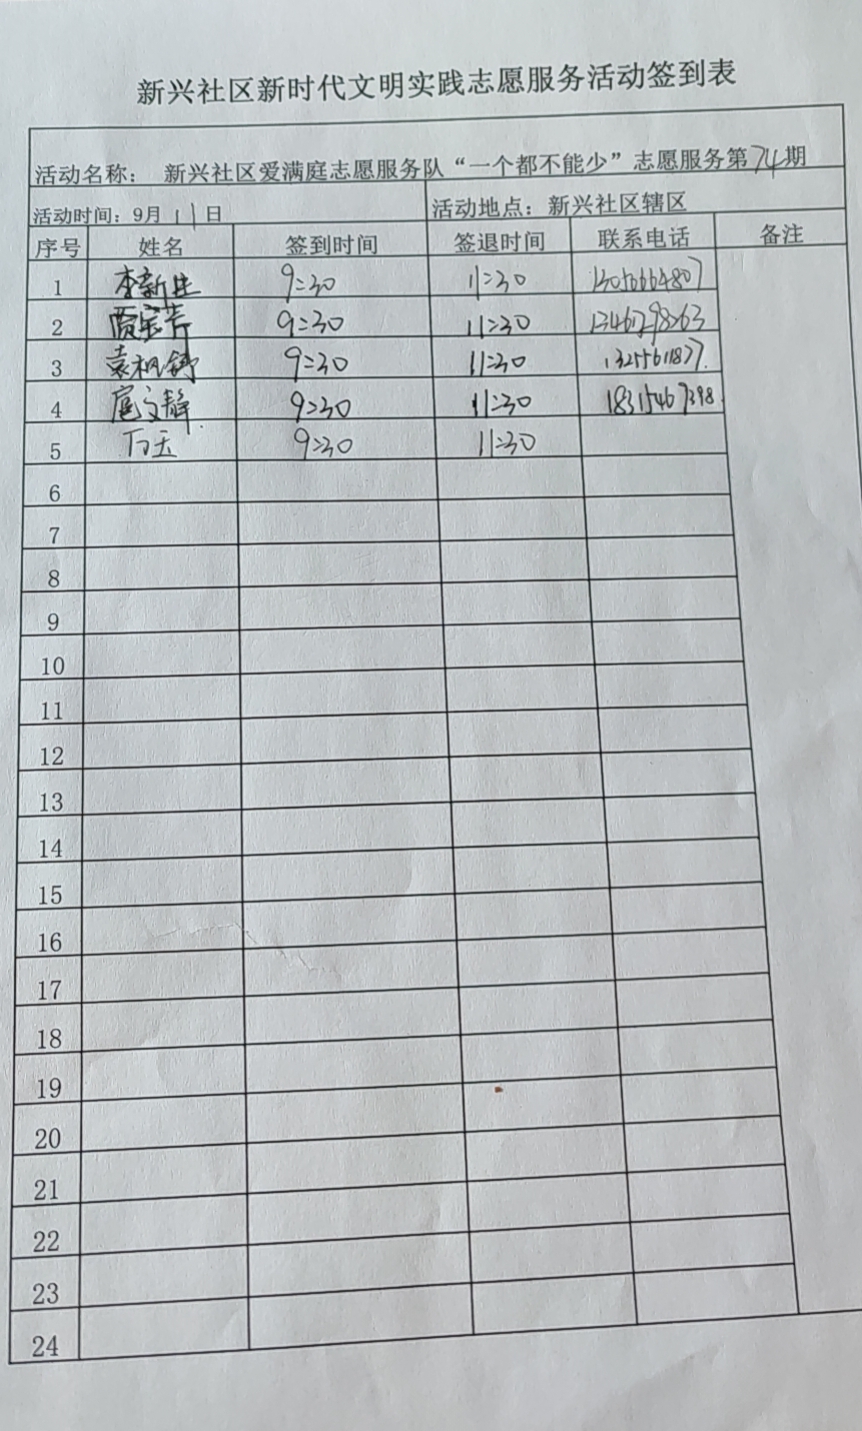 新兴社区新时代文明实践志愿服务活动签到表
活动名称： 新兴社区爱满庭志愿服务队“一个都不能少”志愿服务第74期
活动时间：9月11日 活动地点：新兴社区辖区
序号 姓名 签到时间 签退时间 联系电话 备注
1 李新生 9:30 11:30
2 贾宝芹 9:30 11:30
3 袁枫舒 9:30 11:30
4 扈文静 9:30 11:30 18315467398
5 万玉 9:30 11:30
6
7
8
9
10
11
12
13
14
15
16
17
18
19
20
21
22
23
24